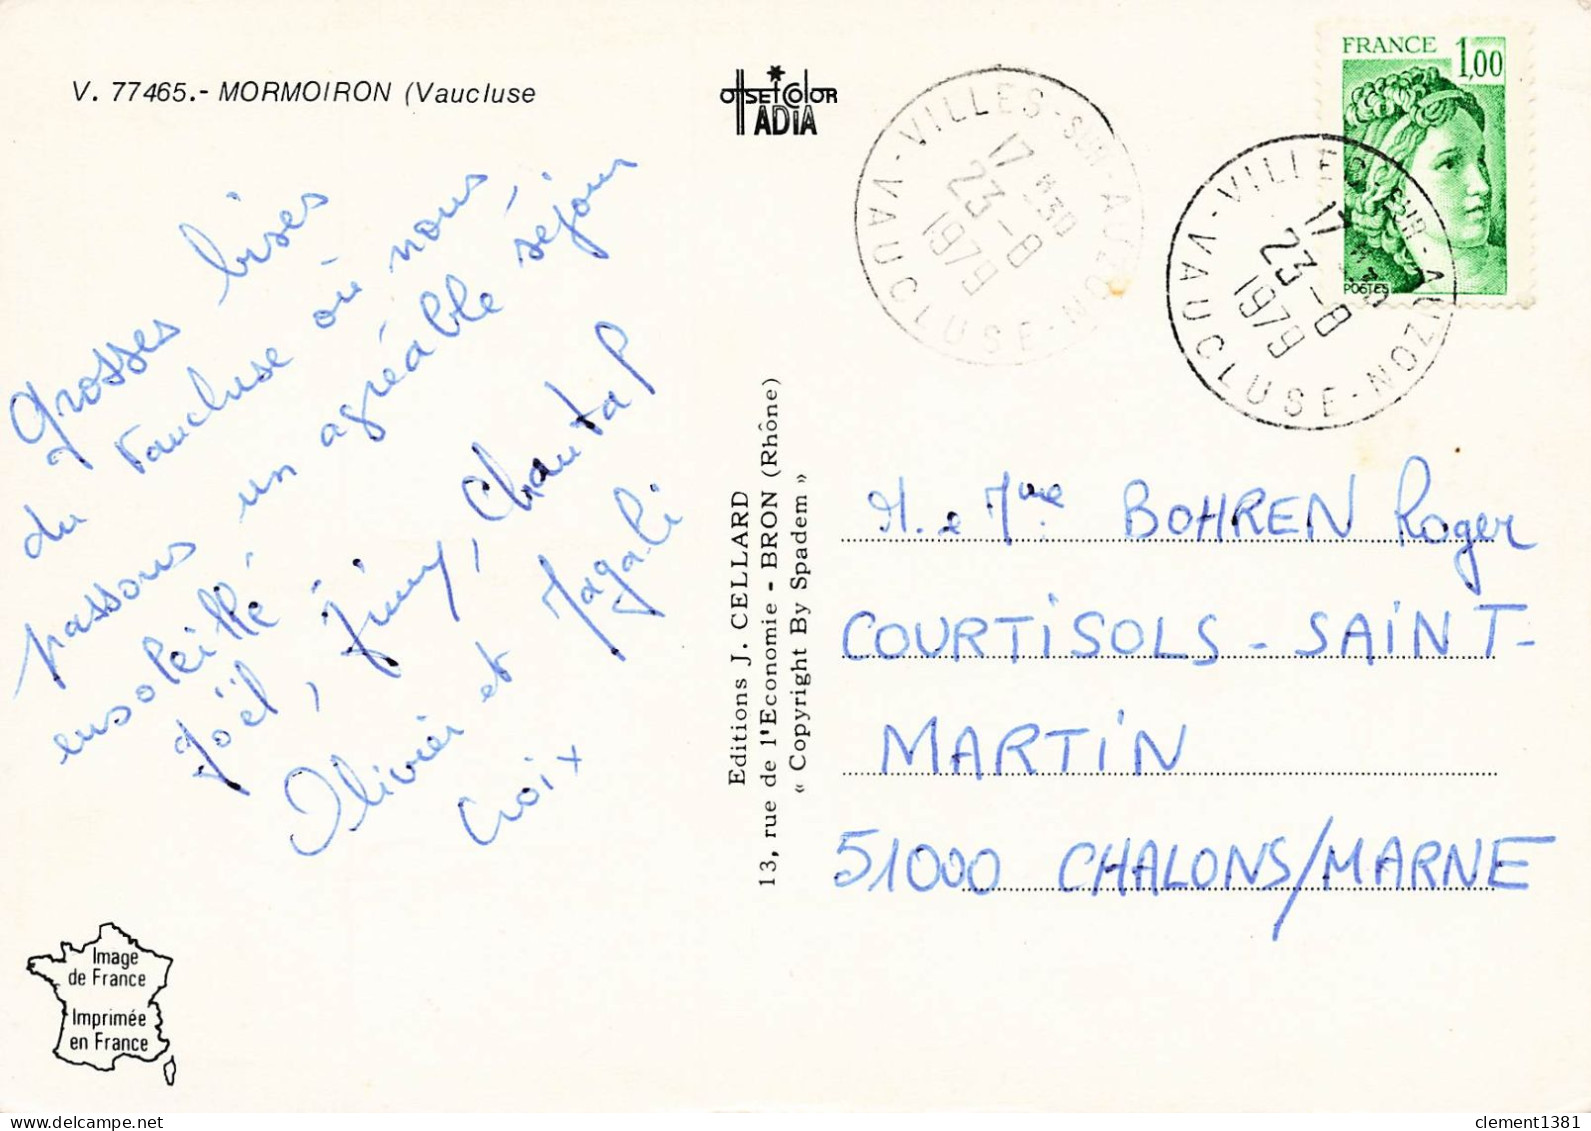 V. 77465.- MORMOIRON (Vaucluse
OffSET COlOR
ADIA
VILLES-SUR-AUZON - VAUCLUSE
17 H30
23-8
1979
FRANCE 1,00
POSTES
VILLES-SUR-AUZON - VAUCLUSE
17 H30
23-8
1979
Grosses bises
du Vaucluse où nous
passons un agréable séjour
ensoleillé
Joël, Jimmy, Chantal
Olivier et Magali
Croix
Editions J. CELLARD
13, rue de l'Economie - BRON (Rhône)
« Copyright By Spadem »
M. e Mme BOHREN Roger
COURTISOLS - SAINT-
MARTIN
51000 CHALONS/MARNE
Image
de France
Imprimée
en France
clement1381